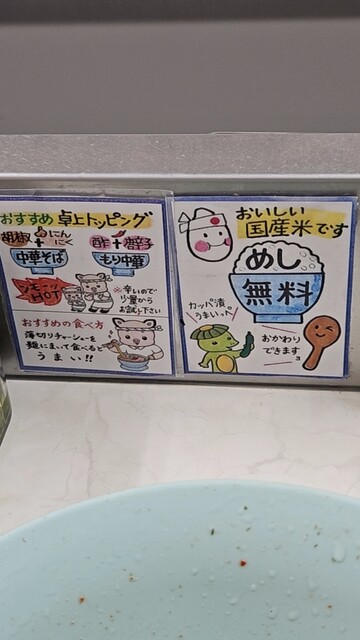 おすすめ 卓上トッピング
胡椒+にんにく
中華そば
酢+唐辛子
もり中華
HOT
※辛いので
少量から
お試し下さい
おすすめの食べ方
薄切りチャーシューを
麺にまいて食べると
うまい!!
おいしい
国産米です
めし
無料
カッパ漬。
うまいっ。
おかわり
できますョ